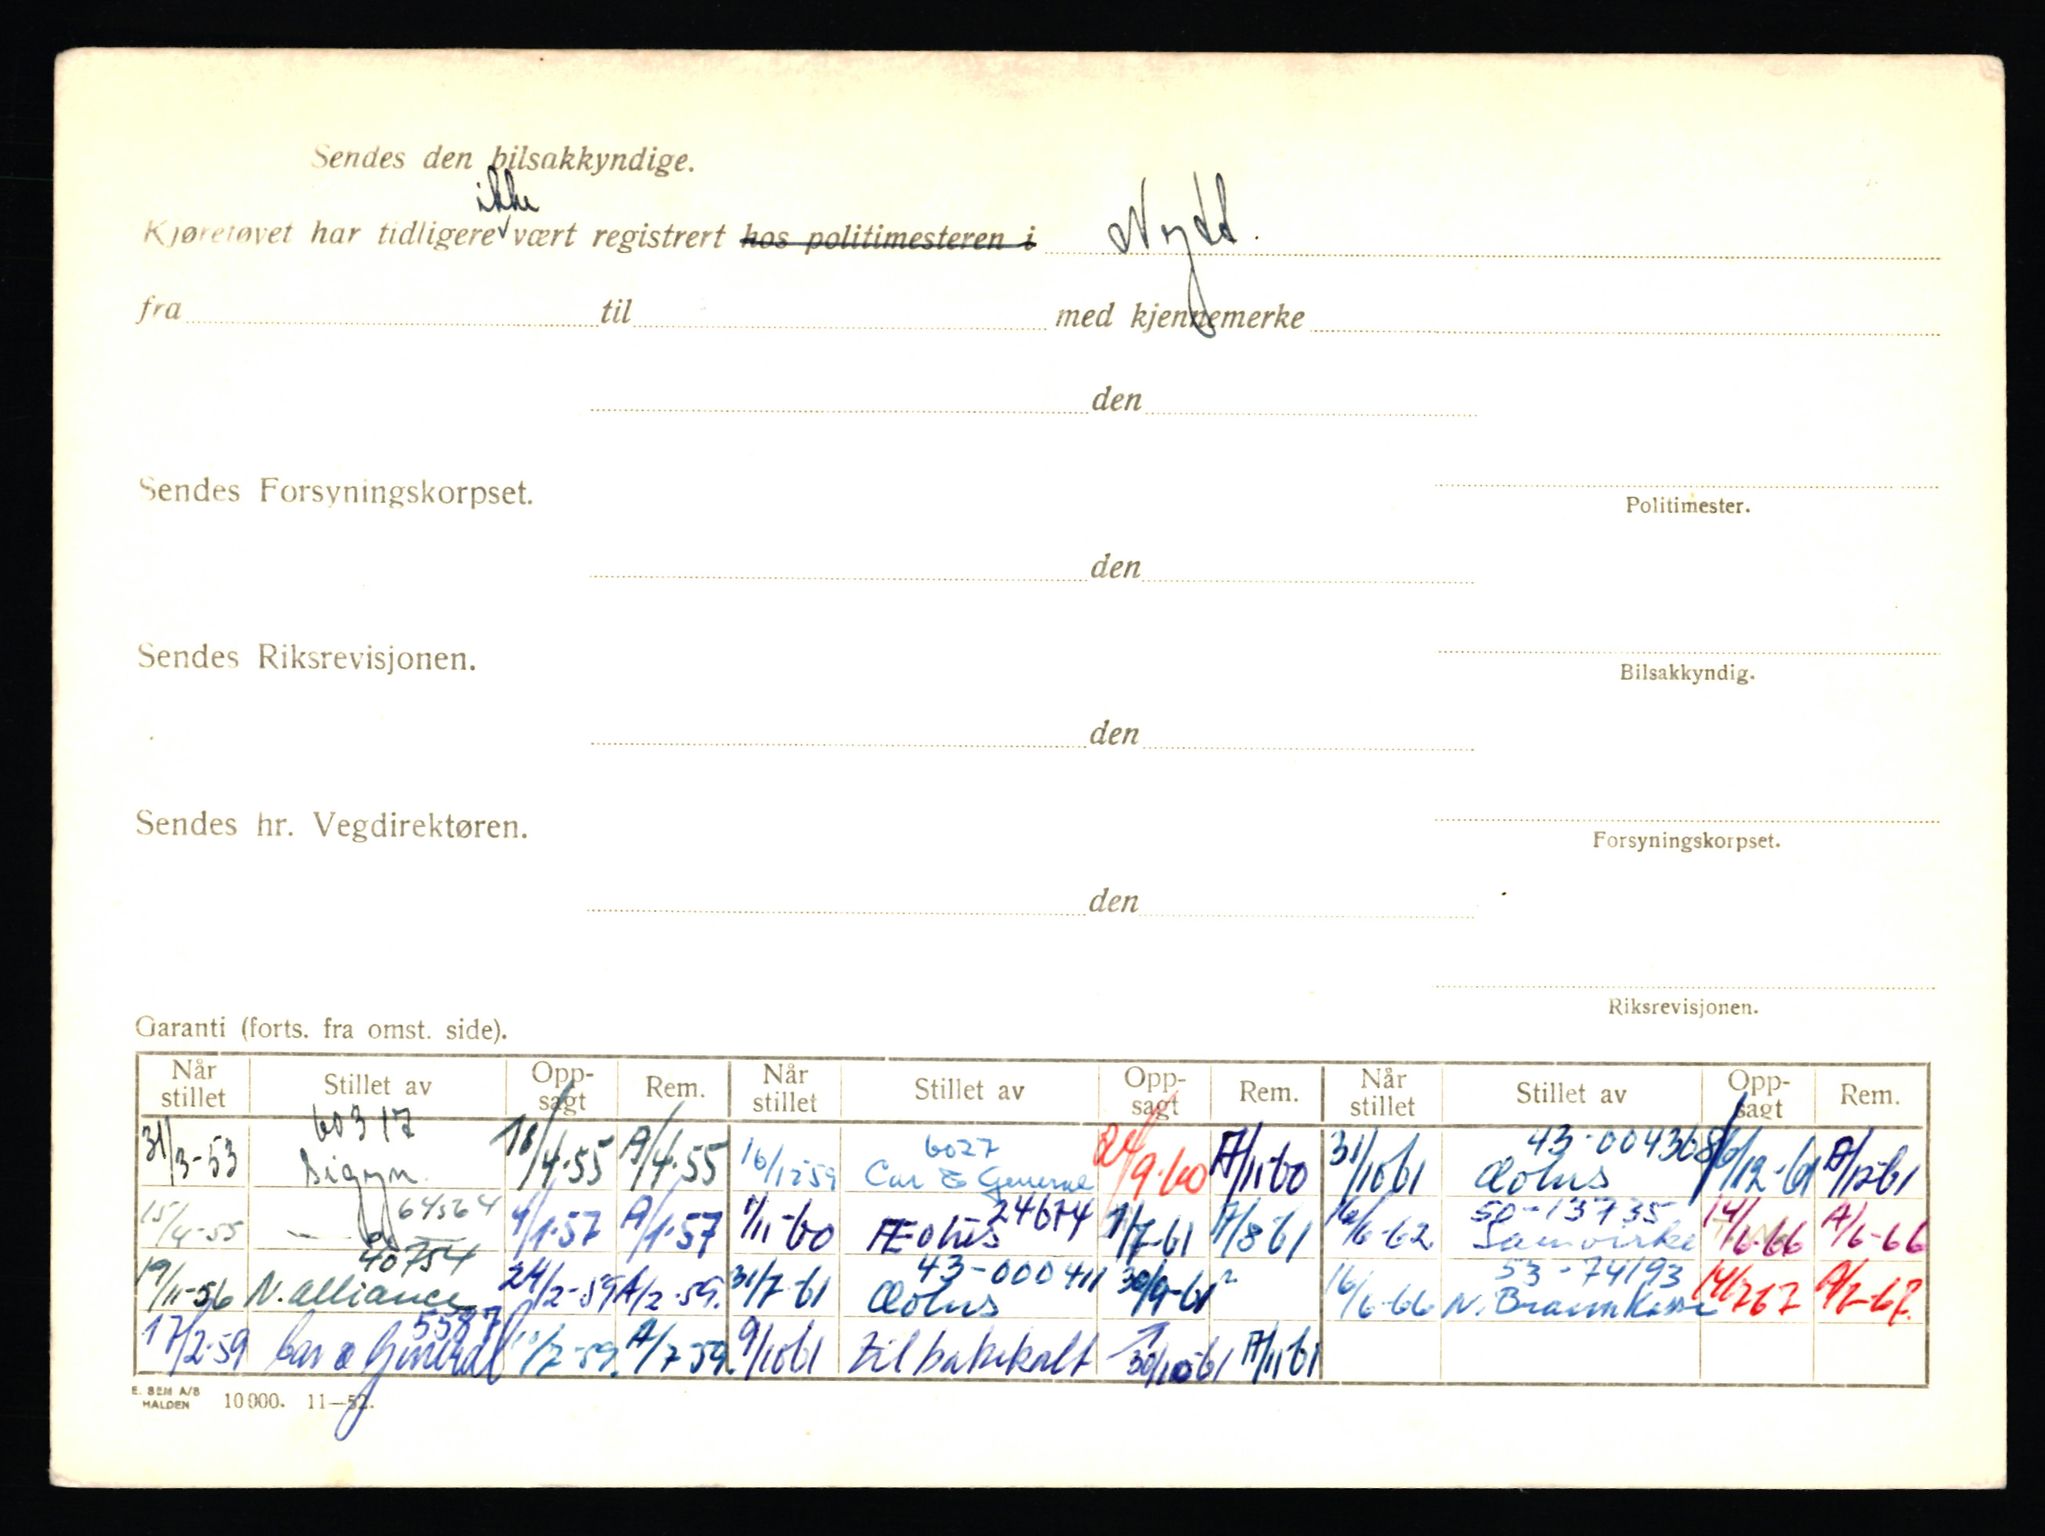 Sendes den bilsakkyndige.
ikke
Kjøretøyet har tidligere vært registrert hos politimesteren i Nytt.
fra til med kjennemerke
den
Sendes Forsyningskorpset.
Politimester.
den
Sendes Riksrevisjonen.
Bilsakkyndig.
den
Sendes hr. Vegdirektøren.
Forsyningskorpset.
den
Riksrevisjonen.
Garanti (forts. fra omst. side).
Når stillet Stillet av Opp-sagt Rem. Når stillet Stillet av Opp-sagt Rem. Når stillet Stillet av Opp-sagt Rem.
60317 6027 43-004308
31/3-53 Sigyn /4-55 A/4-55 16/12-59 Car & General 24/9-60 A/11-60 31/10 61 Æolus /12-61 A/12-61
64564 24674 50-13735
15/4-55 — " — 4/1-57 A/1-57 1/11-60 Æolus 1/7-61 A/8-61 16/6-62 Samvirke 14/6-66 A/6-66
40754 43-000411 53-74193
19/11-56 N. Alliance 24/2-59 A/2-59. 31/7-61 Æolus 30/9-61 16/6-66 N. Brannkasse 14/2 67 A/2-67.
5587
17/2-59 Car & General /7-59. A/7-59. 9/10 61 tilbakekalt 30/10-61 A/11 61
E. SEM A/S
HALDEN 10 000. 11—52.